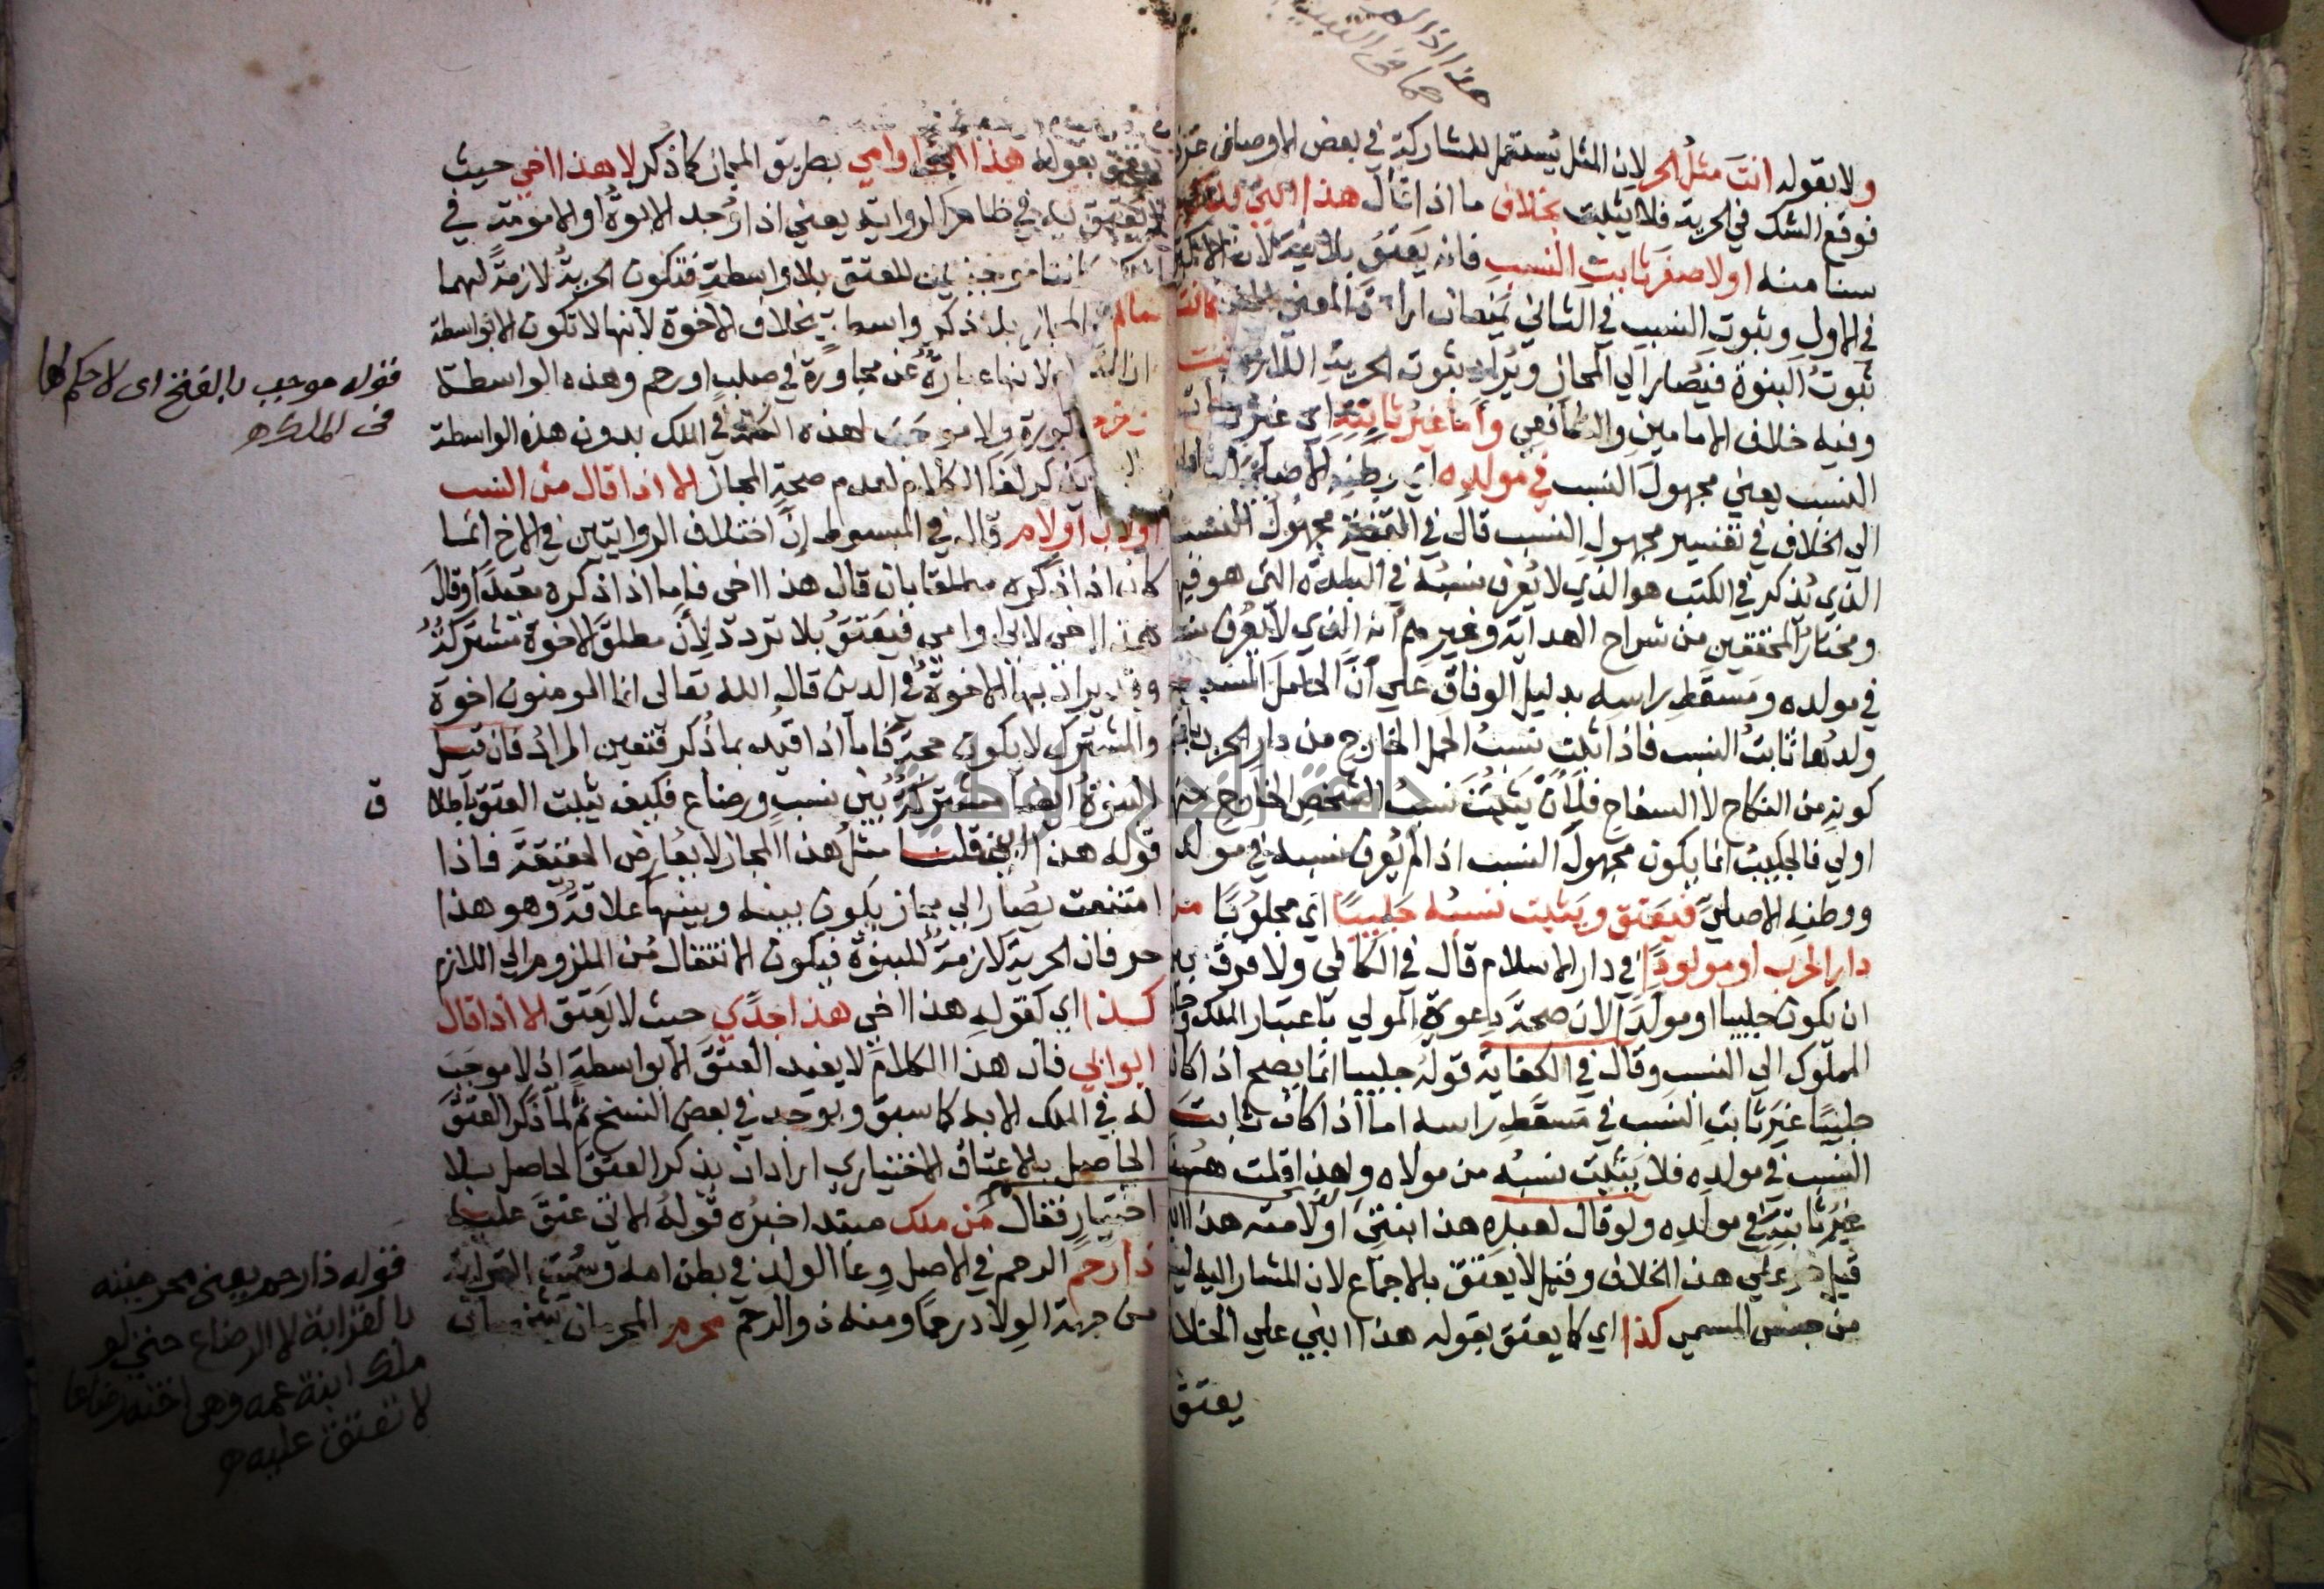 هذا اذا
هما في
ولا بقوله انت مثل الحر لان المثل يستعمل للمشاركة في بعض الاوصاف عرفا
فوقع الشك في الحرية فلا يثبت بخلاف ما اذا قال هذا ابني
سنا منه او لاصغر ثابت النسب فانه يعتق بلا نية لان
في الاول وثبوت النسب في الثاني يمنعان ارادة المعنى
ثبوت البنوة فيصار الي المجاز ويراد ثبوت الحرية اللازمة
وفيه خلاف الامامين والطاعن وأما غير ثابتة اي غير
النسب يعني مجهول النسب في مولده اي وطنه الاصلي
الي الخلاف في تفسير مجهول النسب قال في القنية مجهول النسب
الذي يذكر في الكتب هو الذي لا يعرف نسبه في البلدة التي هو فيها
ومختار المحققين من شراح الهداية وغيرهم انه الذي لا يعرف
في مولده ومسقط راسه بدليل الوفاق علي أن الحامل
ولدها ثابت النسب فاذا ثبت نسب الحمل الخارج من دار الحرب
كونه من النكاح لا السفاح فلأن يثبت نسب الشخص الخارج منها
اولي فالجليب انما يكون مجهول النسب اذا لم يعرف نسبه في مولده
ووطنه الاصلي فيعتق ويثبت نسبه جليبا اي مجلوبا من
دار الحرب او مولودا في دار الاسلام قال في الكافي ولا فرق بين
ان يكون جليبا او مولدا لان صحة دعوة المولي باعتبار الملك
المملوك الي النسب وقال في الكفاية قوله جليبا انما يصح اذا كان
جليبا غير ثابت النسب في مسقط راسه اما اذا كان ثابت
النسب في مولده فلا يثبت نسبه من مولاه ولهذا قلت
غير ثابتة في مولده ولو قال لعبده هذا ابنتي او لامته هذا
قيل هو علي هذا الخلاف وقيل لا يعتق بالاجماع لان المشار اليه ليس
من جنس المسمي كذا اي كما يعتق بقوله هذا ابني علي الخلاف
يعتق
يعتق بقوله هذا ابي او امي بطريق المجاز كما ذكر لا هذا اخي حيث
لا يعتق به في ظاهر الرواية يعني اذا وجد الابوة او الامومة في
كانتا موجبتين للعتق بلا واسطة فتكون الحرية لازمة لهما
المجاز بلا ذكر واسطة بخلاف الاخوة لانها لا تكون الا بواسطة
لانها عبارة عن مجاورة في صلب او رحم وهذه الواسطة
ولا موجب لهذه الكلمة في الملك بدون هذه الواسطة
يذكر لغا الكلام لعدم صحة المجاز الا اذا قال من النسب
او لاب او لام قال في المبسوط إن اختلاف الروايتين في الاخ انما
كان اذا ذكره مطلقا بان قال هذا اخي فاما اذا ذكره مقيدا وقال
هذا اخي لابي او امي فيعتق بلا تردد لأن مطلق الاخوة مشتركة
وقد يراد بها الاخوة في الدين قال الله تعالى انما المومنون اخوة
والمشترك لا يكون حجة فاما اذا قيده بما ذكر فتعين المراد فان قيل
البنوة ايضا مشتركة بين نسب ورضاع فكيف يثبت العتق باطلاق
قوله هذا ابني قلنا مثل هذا المجاز لا يعارض الحقيقة فاذا
امتنعت يصار الي مجاز يكون بينه وبينها علاقة وهو هذا
حر فان الحرية لازمة للبنوة فيكون الانتقال من الملزوم الي اللازم
كذا اي كقوله هذا اخي هذا جدي حيث لا يعتق الا اذا قال
ابو ابي فان هذا الكلام لا يفيد العتق الا بواسطة اذ لا موجب
له في الملك الا به كما سبق ويوجد في بعض النسخ ثم لما ذكر العتق
الحاصل بالاعتاق الاختياري اراد ان يذكر العتق الحاصل بلا
اختيار فقال من ملك مبتدا خبره قوله الاتي عتق عليه
ذا رحم الرحم في الاصل وعا الولد في بطن امه وسميت القرابة
من جهة الولاد رحما ومنه ذو الرحم محرم المحرمان
فقوله موجب بالفتح اى لا حكم لها
فى الملك
ق
قوله ذا رحم يعنى محرميته
بالقرابة لا الرضاع حتى لو
ملك ابنة عمه وهى اخته رضاعا
لا تعتق عليه